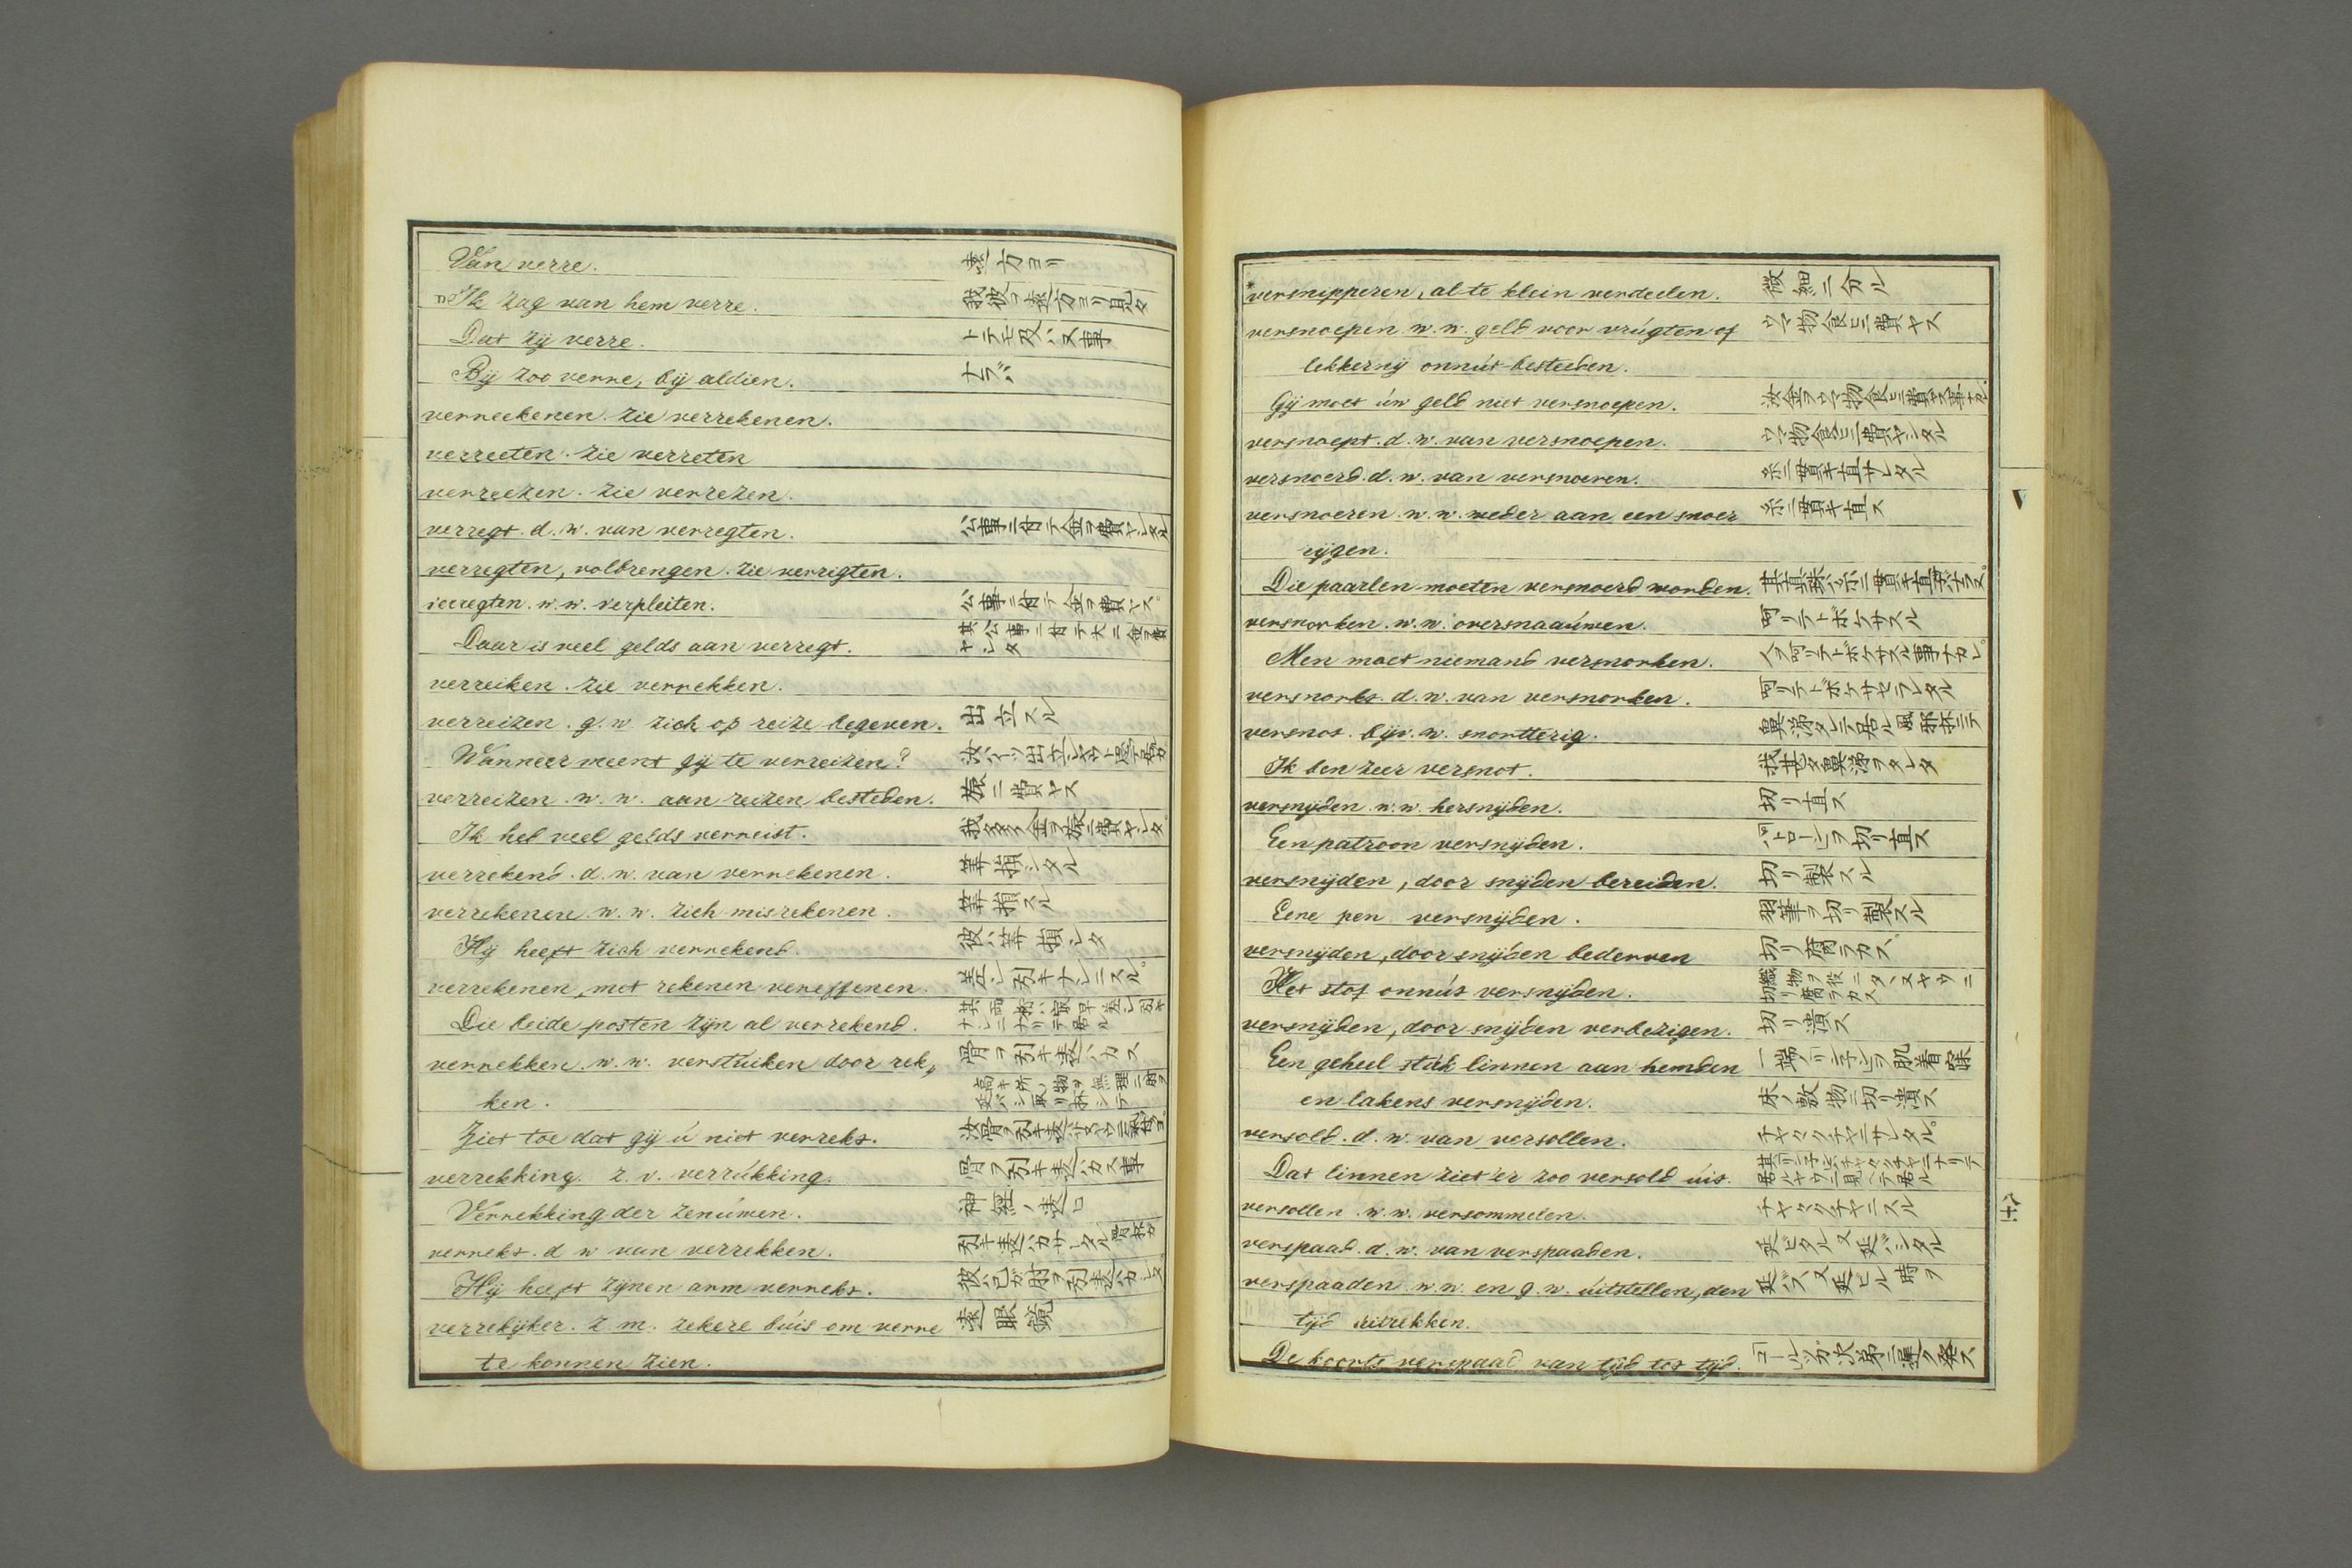 Van verre. 遠方ヨリ
Ik zag van hem verre. 我彼ヲ遠方ヨリ見タ
Dat zij verre. トテモ及バヌ事
Bij zoo verre, bij aldien. ナラバ
verreekenen. zie verrekenen.
verreeten. zie verreten
verreezen. zie verrezen.
verregt. d. w. van verregten. 公事ニ付テ金ヲ費ヤシタル
verregten, volbrengen. zie verrigten.
verregten. w. w. verpleiten. 公事ニ付テ金ヲ費ヤス。
Daar is veel gelds aan verregt. 其公事ニ付テ大ニ金ヲ費ヤシタ
verreiken. zie verrekken.
verreizen. g. w. zich op reize begeven. 出立スル
Wanneer meent gij te verreizen?
verreizen. w. w. aan reizen besteden. 旅ニ費ヤス
Ik heb veel gelds verreist. 我多ク金ヲ旅ニ費ヤシタ
verrekend. d. w. van verrekenen. 算損シタル
verrekenen. w. w. zich misrekenen. 算損スル
Hij heeft zich verrekend. 彼ハ算損シタ
verrekenen, met rekenen vereffenen. 差シ引キナシニスル。
Die beide posten zijn al verrekend.
verrekken. w. w. verstuiken door rek„ 骨ヲ引キ違ハカス
ken.
Ziet toe dat gij ú niet verrekt.
verrekking. z. v. verrukking. 骨ヲ引キ違ハカス事
Verrekking der zenúwen. 神経ノ違ロ
verrekt. d w van verrekken. 引キ違ハカサレタル
Hij heeft zijnen arm verrekt. 彼ハ己ガ肘ヲ引キ違ハカシタ
verrekijker. z. m. zekere búis om verre 遠眼鏡
te konnen zien.
versnipperen, al te klein verdeelen. 微細ニ分ル
versnoepen. w. w. geld voor vrúgten of ウマ物食ヒニ費ヤス
lekkernij onnút besteeden.
Gij moet úw geld niet versnoepen. 汝金ヲウマ物食ヒニ費ヤス事ナカレ。
versnoept. d. w. van versnoepen. ウマ物食ヒニ費ヤシタル
versnoerd. d. w. van versnoeren. 糸ニ貫キ直サレタル
versnoeren. w. w. weder aan een snoer 糸ニ貫キ直ス
rijgen.
Die paarlen moeten versnoerd worden.
versnorken. w. w. oversnaaúwen. 呵リテトボケサスル
Men moet niemand versnorken. 人ヲ呵リテトボケサスル事ナカレ。
versnorkt. d. w. van versnorken. 呵リテトボケサセラレタル
versnot. bijv. w. snortterig. 鼻涕タレテ居ル風邪杯ニテ
Ik ben zeer versnot. 我甚タ鼻涕ヲタレタ
versnijden. w. w. hersnijden. 切リ直ス
Een patroon versnijden. パトローンヲ切リ直ス
versnijden, door snijden bereiden. 切リ製スル
Eene pen versnijden. 羽筆ヲ切リ製スル
versnijden, door snijden bederven 切リ腐ラカス
Het stof onnút versnijden. 織物ヲ役ニタヽヌヤウニ切リ腐ラカス
versnijden, door snijden verbezigen. 切リ潰ス
Een geheel stúk linnen aan hemden
en lakens versnijden. 床ノ敷物ニ切リ潰ス
versold. d. w. van versollen. チヤクチヤニサレタル。
Dat linnen ziet 'er zoo versold úit.
versollen. w. w. versommelen. チヤクチヤニスル
verspaad. d. w. van verspaaden. 延ビタル又延バシタル
verspaaden. w. w. en g. w. úitstellen, den 延バス又延ビル時ヲ
tijd uitrekken.
De koorts verspaad van tijd tot tijd. コールツガ次第ニ遅ク発ス
V